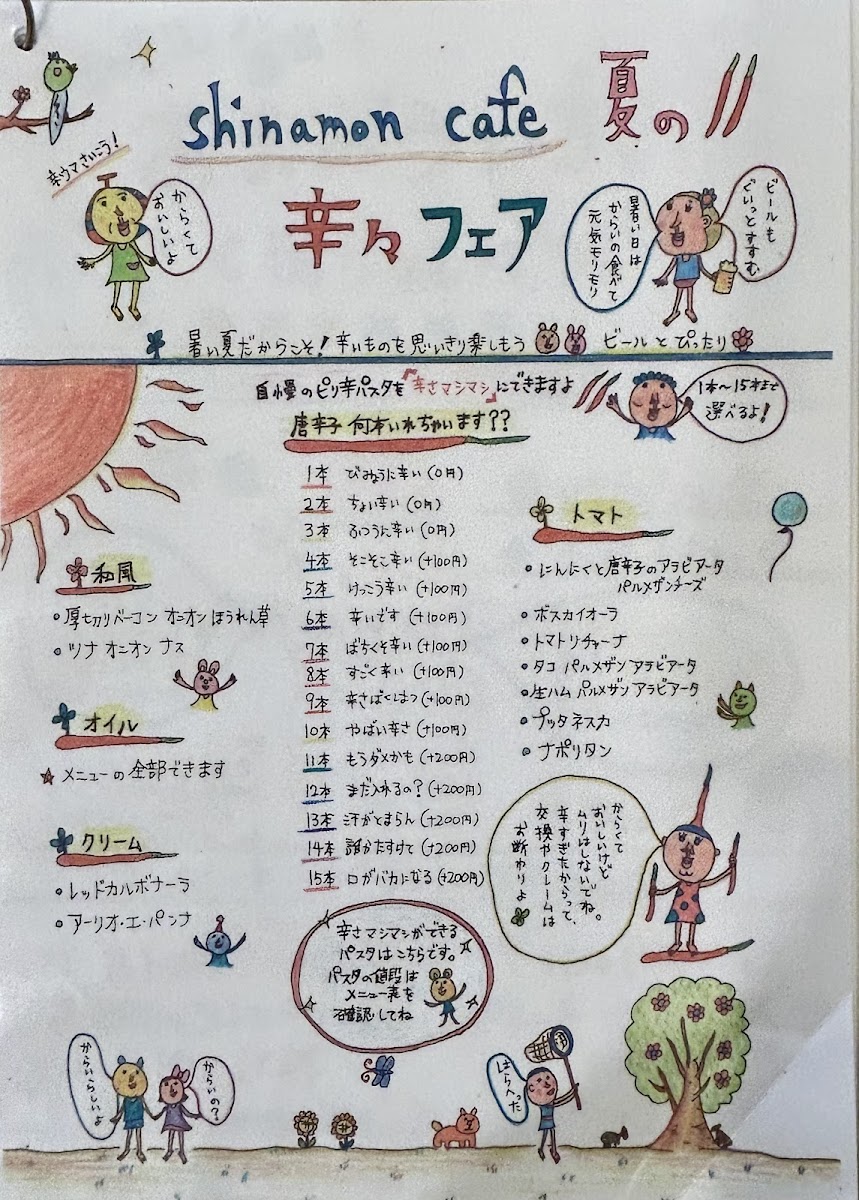 shinamon cafe 夏の
辛々フェア
辛ウマさいこう！
からくて
おいしいよ
暑い日は
からいの食べて
元気モリモリ
ビールも
ぐいっとすすむ
暑い夏だからこそ！辛いものを思いきり楽しもう ビールとぴったり
自慢のピリ辛パスタを『辛さマシマシ』にできますよ
1本〜15本まで
選べるよ！
唐辛子 何本いれちゃいます??
1本 びみょうに辛い (0円)
2本 ちょい辛い (0円)
3本 ふつうに辛い (0円)
4本 そこそこ辛い (+100円)
5本 けっこう辛い (+100円)
6本 辛いです (+100円)
7本 ばちくそ辛い (+100円)
8本 すごく辛い (+100円)
9本 辛さばくはつ (+100円)
10本 やばい辛さ (+100円)
11本 もうダメかも (+200円)
12本 まだ入れるの？ (+200円)
13本 汗がとまらん (+200円)
14本 誰かたすけて (+200円)
15本 口がバカになる (+200円)
和風
・厚切りベーコン オニオン ほうれん草
・ツナ オニオン ナス
オイル
★ メニューの全部できます
クリーム
・レッドカルボナーラ
・アーリオ・エ・パンナ
トマト
・にんにくと唐辛子のアラビアータ
パルメザンチーズ
・ボスカイオーラ
・トマトリチャーナ
・タコ パルメザン アラビアータ
・生ハム パルメザン アラビアータ
・プッタネスカ
・ナポリタン
からくて
おいしいけど
ムリはしないでね。
辛すぎたからって、
交換やクレームは
お断わりよ
辛さマシマシができる
パスタはこちらです。
パスタの値段は
メニュー表を
確認してね
からいらしいよ
からいの？
はらへった